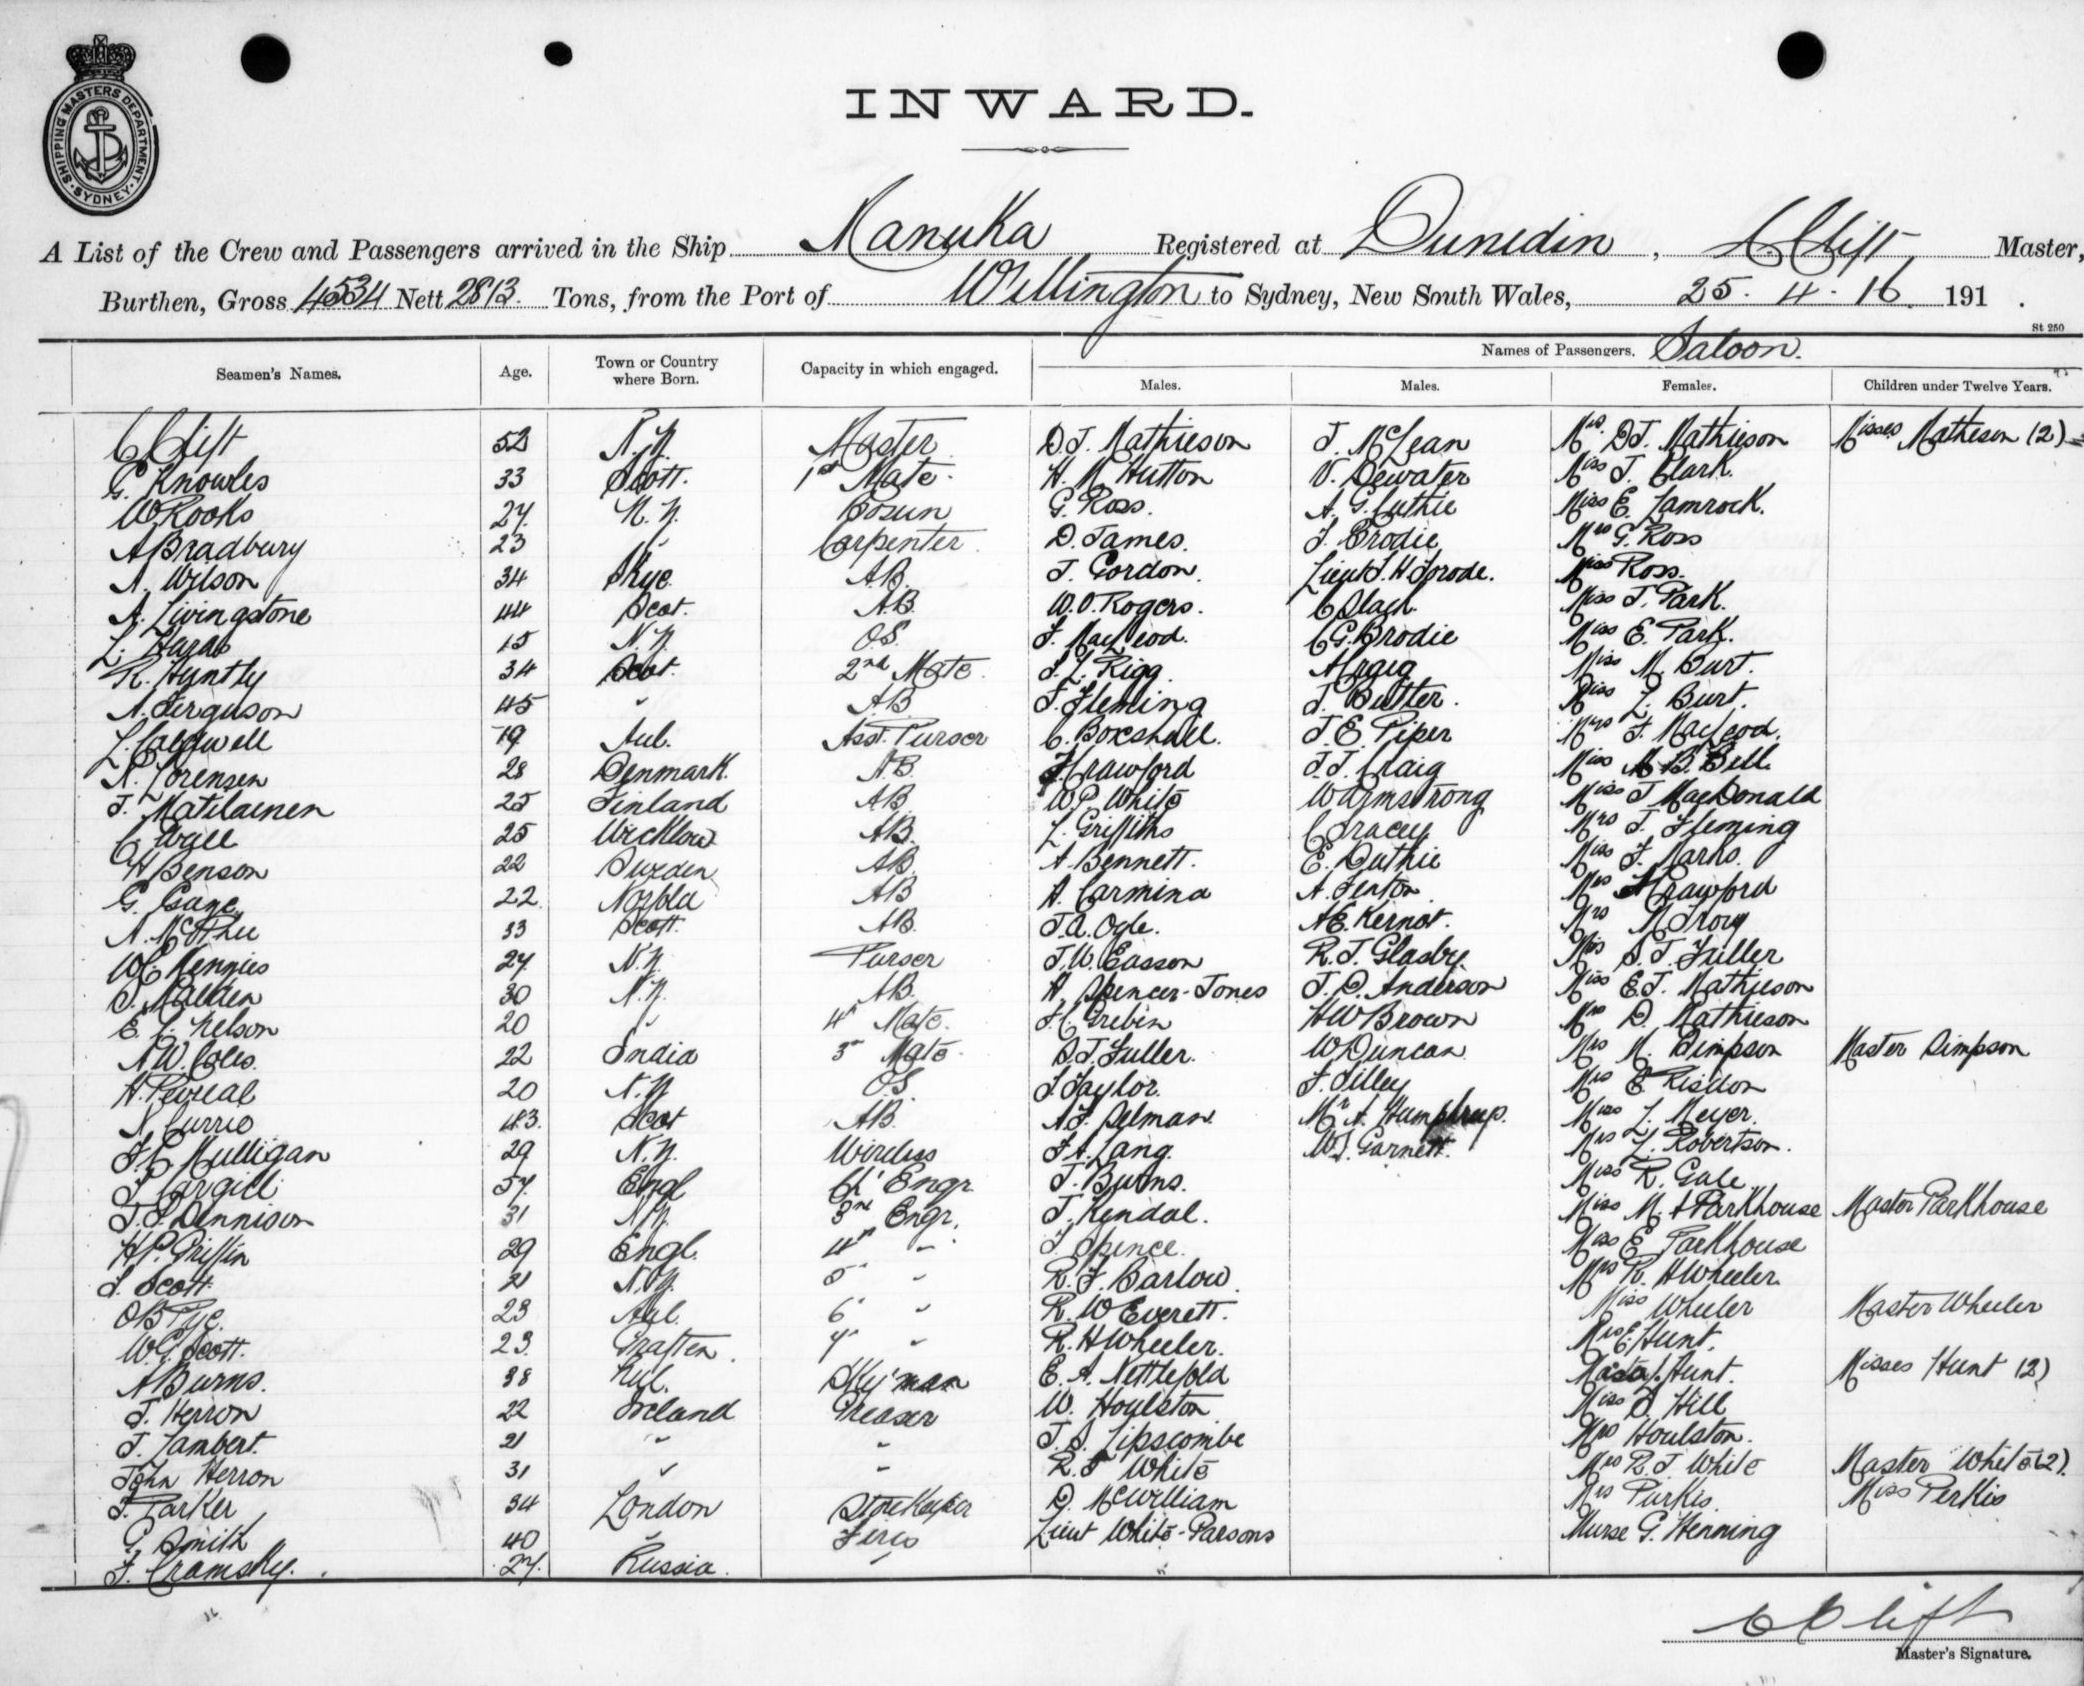 SHIPPING MASTERS DEPARTMENT. SYDNEY.
INWARD.
A List of the Crew and Passengers arrived in the Ship Manuka Registered at Dunedin, C Clift Master,
Burthen, Gross 4534 Nett 2813 Tons, from the Port of Wellington to Sydney, New South Wales, 25. 4. 16 191 .
St 250
Names of Passengers. Saloon.
Seamen's Names. Age. Town or Country where Born. Capacity in which engaged. Males. Males. Females. Children under Twelve Years.
C Clift 52 N.Z. Master D.J. Mathieson J. McLean Mrs. D.J. Mathieson Misses Matheson (2)
G. Knowles 33 Scott. 1st Mate. H. M. Hutton V. Dewater Miss J. Clark.
W Rooks 27. N.Z. Bosun G. Ross. A. G. Guthie Miss E. Lamrock.
A Bradbury 23 " Carpenter D. James. J. Brodie Mrs G. Ross
A. Wilson 34 Skye A.B. J. Gordon. Lieut J. H. Miss Ross.
A. Livingstone 44 Scot. A.B. W. O. Rogers. C Slack. Miss J. Park.
L. 15 N.Z. O.S. J. MacLeod. C G. Brodie Miss E. Park.
R. Huntly 34 Scot. 2nd Mate. J. L. Rigg A Craig Miss M. Burt.
A. Ferguson 45 " A.B J. Fleming J. Butter. Miss L. Burt.
L. Caldwell 19 Aub. Asst. Purser C. Boxshall. J. E. Piper Mrs J. MacLeod.
K. Lorensen 28 Denmark. A.B. J Crawford J. J. Craig Miss A B. Bell.
J. Matilainen 25 Finland A.B. W P. White W Armstrong Miss J MacDonald
C Wall 25 Wicklow A.B. L. Griffiths C Tracey Mrs J. Fleming
H Benson 22 Sweden A.B. A. Bennett. E. Duthie Miss J. Marks.
G. Gane 22. A.B A. Carmina A. Fenton Mrs Crawford
A. McPhee 33 Scott. A.B. J. A. Ogle. A E. Kernot. Mrs M Troy
W C Mennies 27 N.Z. Purser J. W. Easson R. J. Glasby. Mrs S. J. Fuller
S. Malden 30 N.Z. A.B. A. Spencer-Jones J. D. Anderson Miss E. J. Mathieson
E. L. Nelson 20 " 4th Mate. J. C Grebin H W Brown Mrs D. Mathieson
A W. Coles. 22 India 3rd Mate. S. J. Fuller. W Duncan Mrs M. Simpson Master Simpson
H. Pewseal 20 N.Z. O.S. J Taylor. F. Tilley Mrs E. Risdon
A Currie 43. Scot A.B. A. J. Selman. Mr A. Humphreys. Miss L. Meyer.
J. C Mulligan 29 N.Z. Wireless J. A. Lang. W. J. Garnett. Mrs L. Robertson.
J Cargill 57. Engl Ch' Engr. J. Burns. Miss R. Gale
J. S. Dennison 31 N.Z. 3rd Engr. J. Kendal. Miss M. A Parkhouse Master Parkhouse
H P. Griffin 29 Engl. 4th " J. Spence. Miss E Parkhouse
J. Scott. 21 N.Z. 5" " R. J. Barlow Mrs R. H Wheeler.
O B Pye. 23 Aul. 6" " R. W Everett. Miss Wheeler Master Wheeler
W. G. Scott. 23. Graften. 7" " R. H Wheeler. Mrs E Hunt.
A Burns. 38 E. A. Nettlefold Hunt. Misses Hunt (2)
J. Herron 22 Ireland Greaser W. Houlston Miss D Hill
J. Lambert. 21 " " J. S. Lipscombe Mrs Houlston.
John Herron 31 " " R. J White Mrs R. J. White Master White (2).
J. Parker 34 London Storekeeper D. McWilliam Mrs Purkis. Miss Perkis
G Smith 40 " Fires Lieut White-Parsons Nurse G. Henning
J. Cramsky. 27. Russia. "
C Clift
Master's Signature.